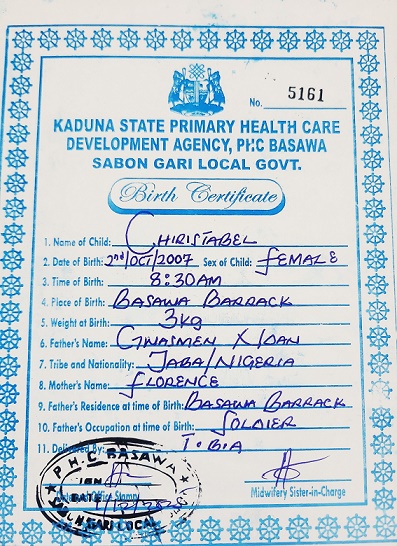 No. 5161
KADUNA STATE PRIMARY HEALTH CARE
DEVELOPMENT AGENCY, PHC BASAWA
SABON GARI LOCAL GOVT.
Birth Certificate
1. Name of Child: CHIRISTABEL
2. Date of Birth: 2nd/OCT/2007 Sex of Child: FEMALE
3. Time of Birth: 8:30AM
4. Place of Birth: BASAWA BARRACK
5. Weight at Birth: 3kg
6. Father's Name: GWASMEN
7. Tribe and Nationality: JABA/NIGERIA
8. Mother's Name: FLORENCE
9. Father's Residence at time of Birth: BASAWA BARRACK
10. Father's Occupation at time of Birth: SOLDIER
11. Delivered By: T. BIA
P.H.C BASAWA
Office Stamp
SABON GARI LOCAL
Midwifery Sister-in-Charge